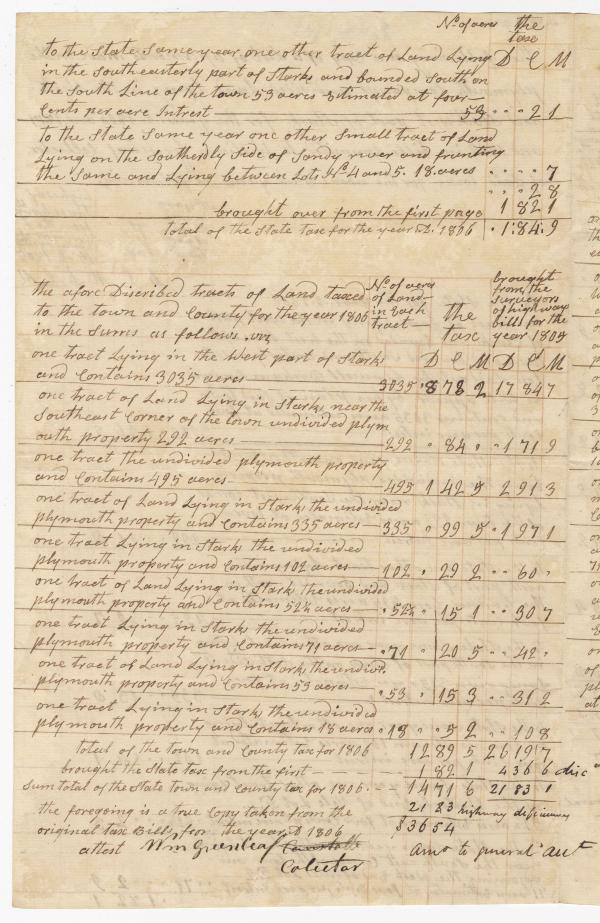 No. of acres the
tax
to the State same year one other tract of Land Lying D C M
in the southeasterly part of Starks and bounded South on
the South Line of the town 53 acres Estimated at four
Cents per acre Intrest 53 " " 2 1
to the State same year one other small tract of Land
Lying on the Southerdly side of Sandy river and frunting
the same and Lying between Lots No 4 and 5. 18. acres " " " 7
" " 2 8
brought over from the first page 1 8 2 1
total of the State tax for the year D. 1806 " 1:84.9
the afore Discribed tracts of Land taxed
to the town and County for the year 1806
in the Sums as follows. viz
No. of acres
of Land
in Each
tract
the
tax
brought
from the
Surveyors
of highways
bill for the
year 1805
D C M D C M
one tract Lying in the West part of Starks
and Contains 3035 acres 3035 " 8 78 2 17 84 7
one tract of Land Lying in Starks, near the
Southeast Corner of the town undivided plym
outh property 292 acres 292 " 84 " " 1 71 9
one tract the undivided plymouth property
and Contains 495 acres 495 1 42 5 2 91 3
one tract of Land Lying in Starks the undivided
plymouth property and Contains 335 acres 335 " 99 5 " 1 97 1
one tract Lying in Starks the undivided
plymouth property and Contains 102 acres 102 " 29 2 " " 60 "
one tract of Land Lying in Starks the undivided
plymouth property and Contains 52½ acres 52½ " 15 1 " " 30 7
one tract Lying in Starks the undivided
plymouth property and Contains 71 acres " 71 " 20 5 " " 42 "
one tract of Land Lying in Starks, the undivd.
plymouth property and Contains 53 acres " 53 " 15 3 " " 31 2
one tract Lying in Starks, the undivided
plymouth property and Contains 18 acres " 18 " " 5 2 " " 10 8
total of the town and County tax for 1806 12 89 5 26 19 7
brought the State tax from the first 1 82 1 4 36 6 disc
Sum total of the State town and County tax for 1806. 14 71 6 21 83 1
the foregoing is a true Copy taken from the 21 83 highway
original tax Bills, for the year D 1806 $36 54
attest Wm Greenleaf Constable Amt to general a/c
Colector